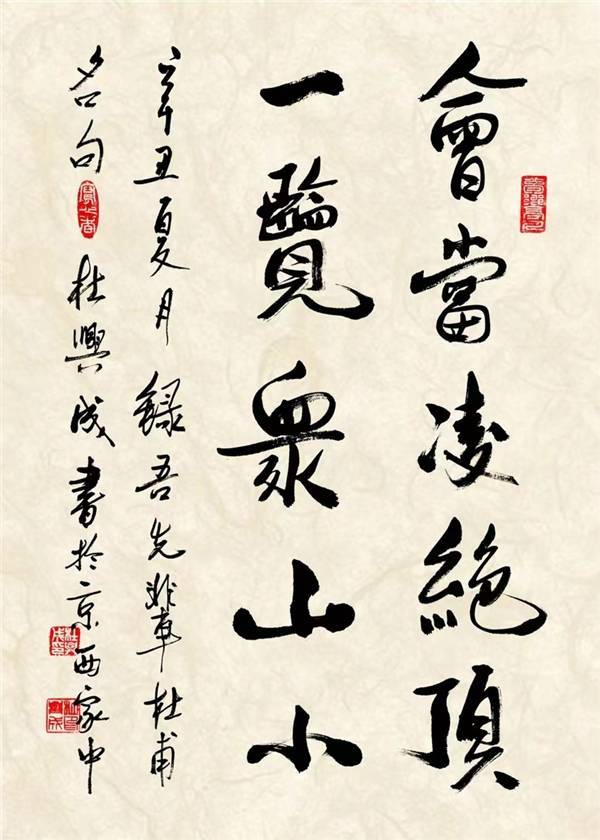 會當凌絕頂
一覽衆山小
辛丑夏月錄吾先輩杜甫
名句
杜興成書於京西家中